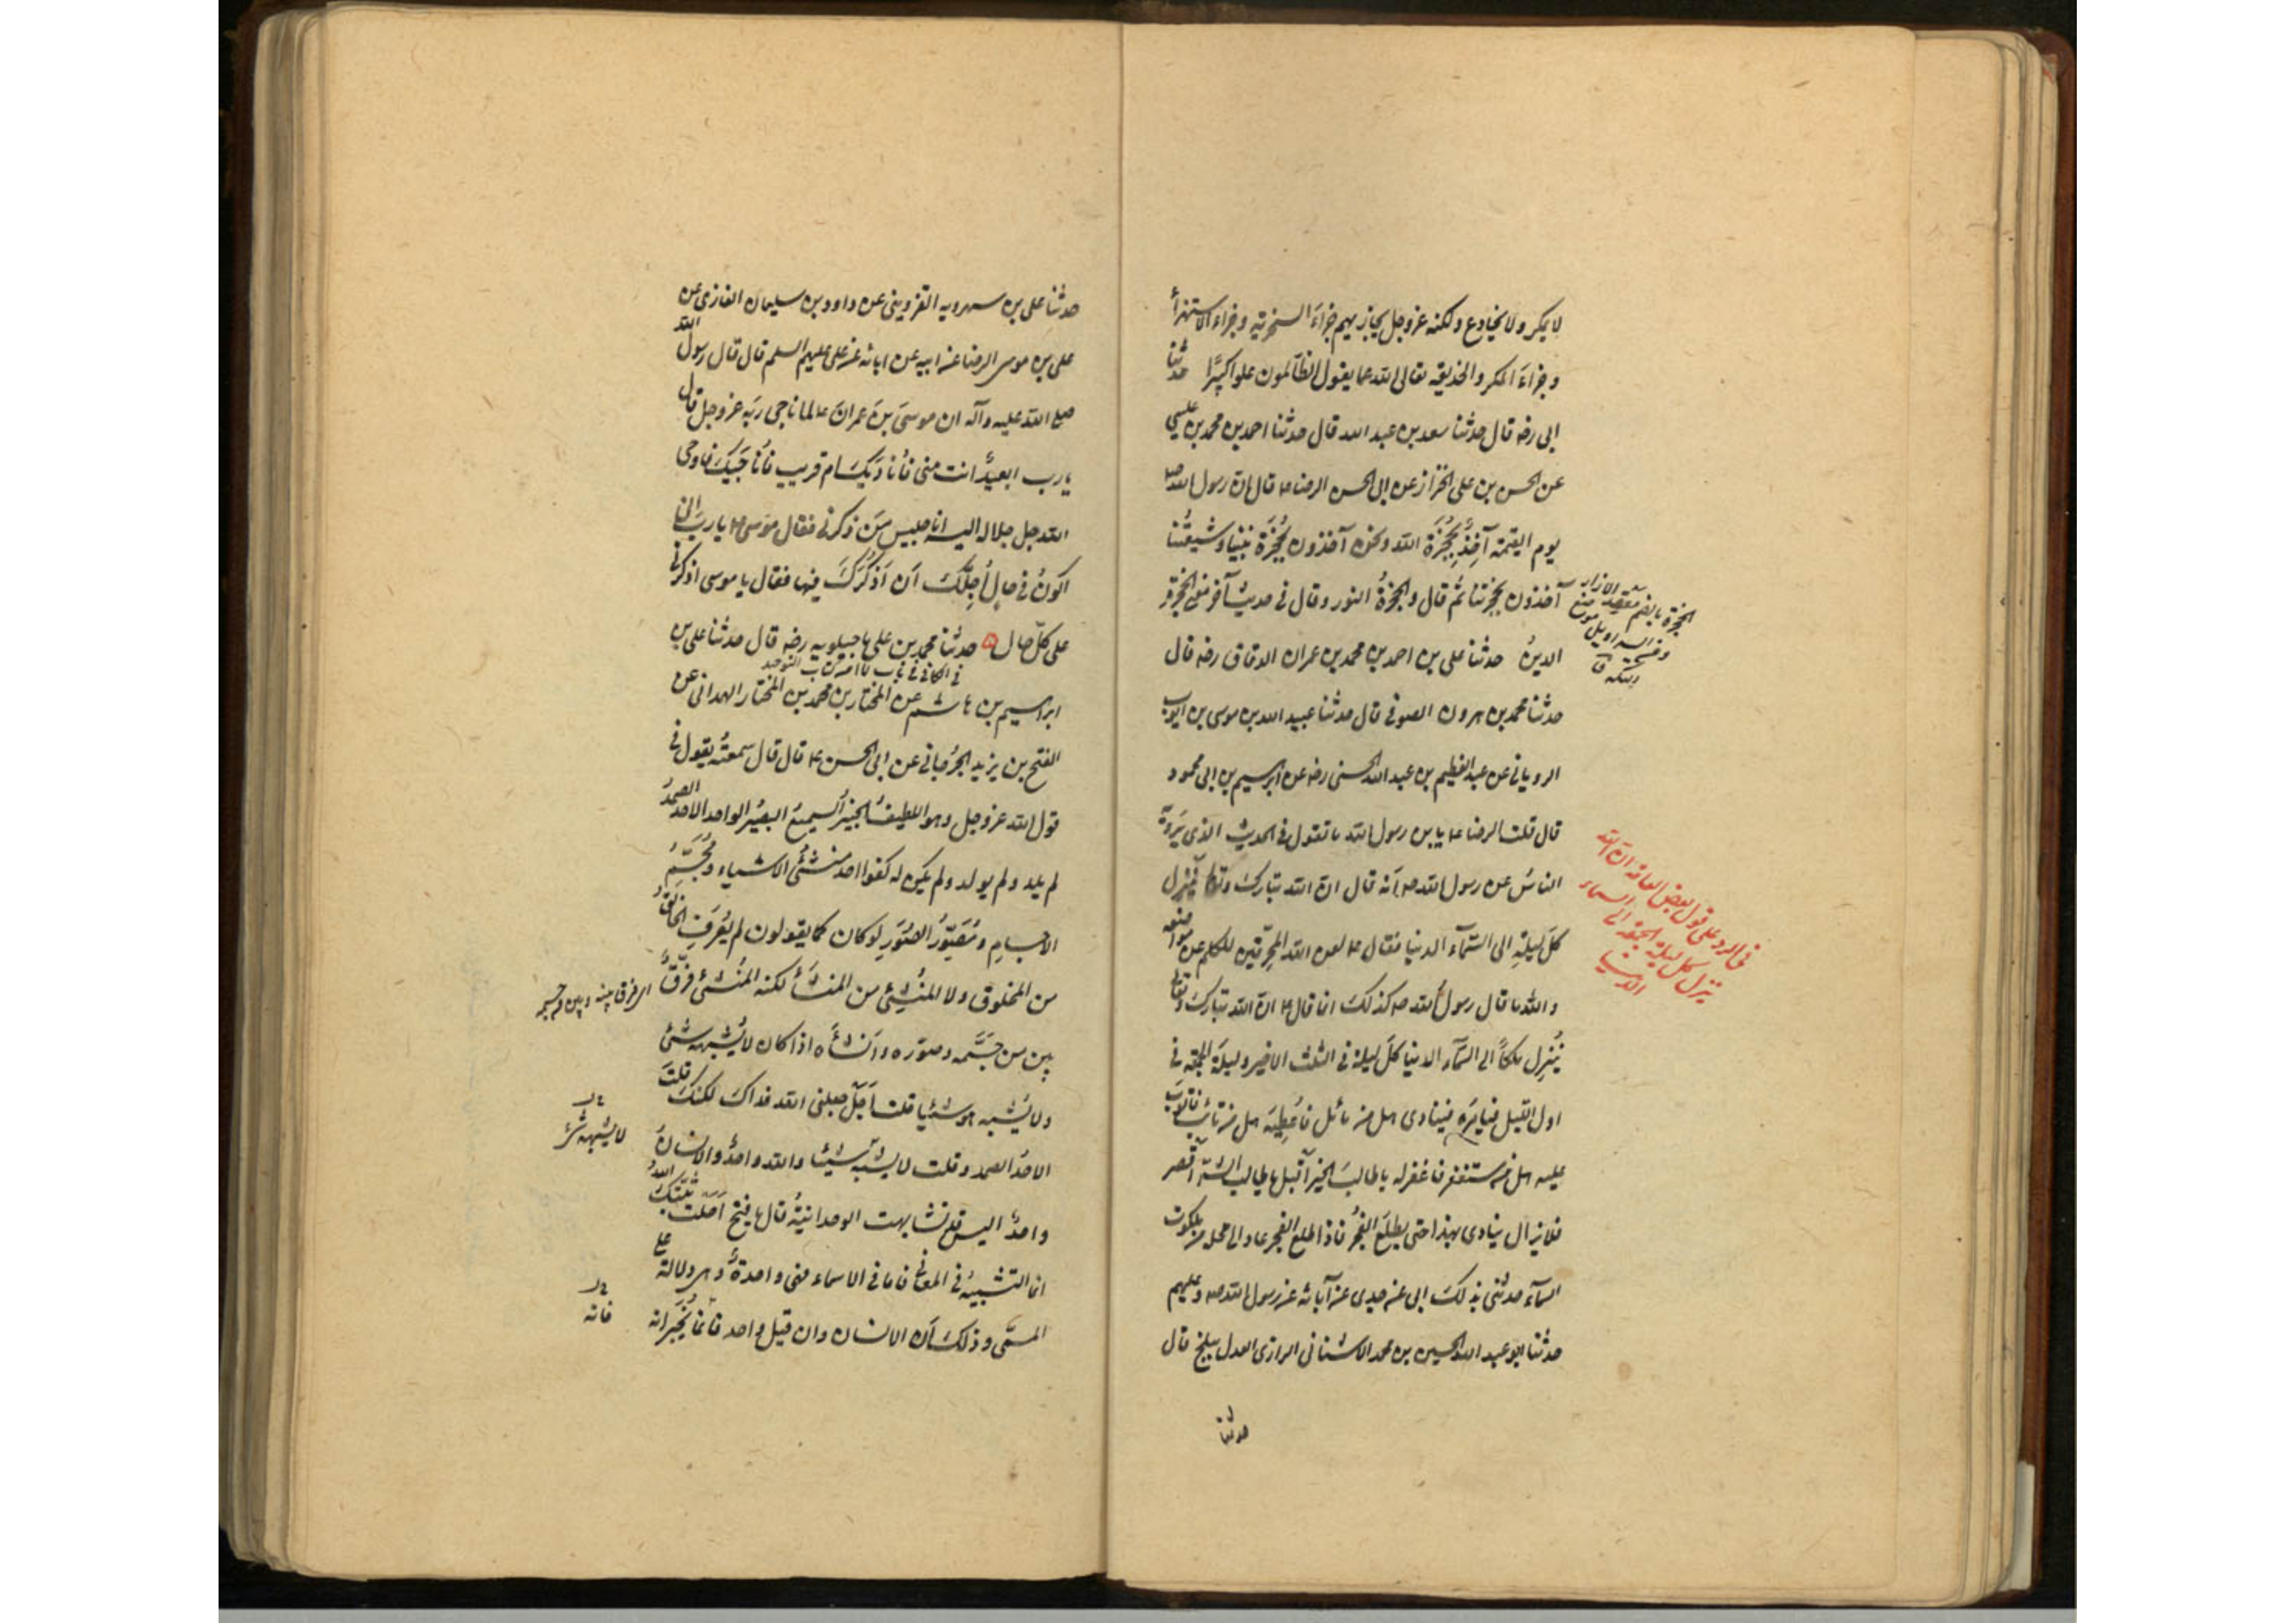 لا يمكر ولا يخادع ولكنه عز وجل يجازيهم جزاء السخرية وجزاء الاستهزاء
وجزاء المكر والخديعة تعالى الله عما يقول الظالمون علوا كبيرًا حدثنا
ابى رضه قال حدثنا سعد بن عبد الله قال حدثنا احمد بن محمد بن عيسى
عن الحسن بن على الخزاز عن ابى الحسن الرضا ع قال ان رسول الله ص
يوم القيمة آخِذٌ بِحُجْزَة الله ونحن آخذون بحُجْزَة نبينا وشيعتُنا
آخذون بحجزتنا ثم قال والحجزةُ النور وقال فى حديث آخر معنى الحجزة
الدينُ حدثنا على بن احمد بن محمد بن عمران الدقاق رضه قال
حدثنا محمد بن هرون الصوفى قال حدثنا عبيد الله بن موسى بن ايوب
الرويانى عن عبد العظيم بن عبد الله الحسنى رضه عن ابرهيم بن ابى محمود
قال قلت للرضا ع يا بن رسول الله ما تقول فى الحديث الذى يَرويه
الناسُ عن رسول الله ص انه قال ان الله تبارك وتعا ينزل
كلَ ليلةِ الى السَّمآء الدنيا فقال ع لعن الله المحرّفين للكلم عن مواضعه
والله ما قال رسول الله ص كذلك انما قال ع ان الله تبارك وتعا
يُنزِل ملكًا الى السمآء الدنيا كلَ ليلة فى الثلث الاخير وليلة الجمعة فى
اول الليل فيامُرَه فينادى هل من سائل فاُعطِيَه هل من تائب فاتوبَ
عليه هل من مستغفر فاغفرله يا طالبَ الخير اَقبِل يا طالب الشرّ اَقصر
فلا يزال ينادى بهذا حتى يطلعَ الفجرُ فاذا طلع الفجر عاد الى محله من ملكوت
السمآء حدثنى بذلكَ ابى عن جدى عن آبائه عن رسول الله ص وعليهم
حدثنا ابو عبد الله الحسين بن محمد الاشنانى الرازى العدل ببلخ قال
حدثنا
الحجزة بالضم معقد الازار
ومن السراويل موضع
التكة ق
فى الرد على قول بعض العامة ان الله
ينزل كل ليلة الجمعة الى السماء
الدنيا
حدثنا على بن مهرويه القزوينى عن داود بن سليمان الغازى عن
على بن موسى الرضا عن ابيه عن ابائه عن على عليهم السلم قال قال رسول الله
صلى الله عليه وآله ان موسىَ بنَ عمرانَ ع لما ناجى ربَه عز وجل قال
يا رب ابعيدٌ انت منى فأناديَكَ ام قريب فأناجيَك فاوحى
الله جل جلاله اليه انا جليس مَن ذكرنى فقال موسى ع يا رب انى
اكونُ فى حالٍ اُجِلُّكَ اَن اَذكُرَكَ فيها فقال يا موسى اذكرنى
على كلّ حال حدثنا محمد بن على ماجيلويه رضه قال حدثنا على بن
ابراهيم بن هاشم عن المختار بن محمد بن المختار الهمدانى عن
الفتح بن يزيد الجُرجانى عن ابى الحسن ع قال قال سمعتُه يقول فى
قول الله عز وجل وهو اللطيفُ الخبيرُ السميعُ البصيرُ الواحد الاحد الصمدُ
لم يلد ولم يولد ولم يكن له كفوا احد منشئُ الاشياء ومُجَسِّمُ
الاجسامِ ومُصَوِّرُ الصُوَرِ لو كان كما يقولون لم يُعرَفِ الخالقُ
من المخلوق ولا المُنشِئُ من المنشَأ لكنه المُنشئ فَرّقَ
بين من جَسَّمه وصوّره واَنشَأه اذا كان لا يُشبِهه شئ
ولا يُشبِه هو شيئا قلت اَجَل جعلنى الله فداك لكنك قلتَ
الاحدُ الصمد وقلت لا يشبه شيئا والله واحدٌ والانسانُ
واحدٌ اليس قد تشابهت الوحدانيةُ قال يا فتح اَحَلتَ ثبّتك اللهُ
انما التشبيهُ فى المعانى فاما فى الاسماء فهى واحدةٌ وهى دلالة على
المسمّى وذلك اَن الانسان وان قيل واحد فانما يُخبَر انه
الفرق بينه وبين من جسمه
لا يشبهه شئ
فانه